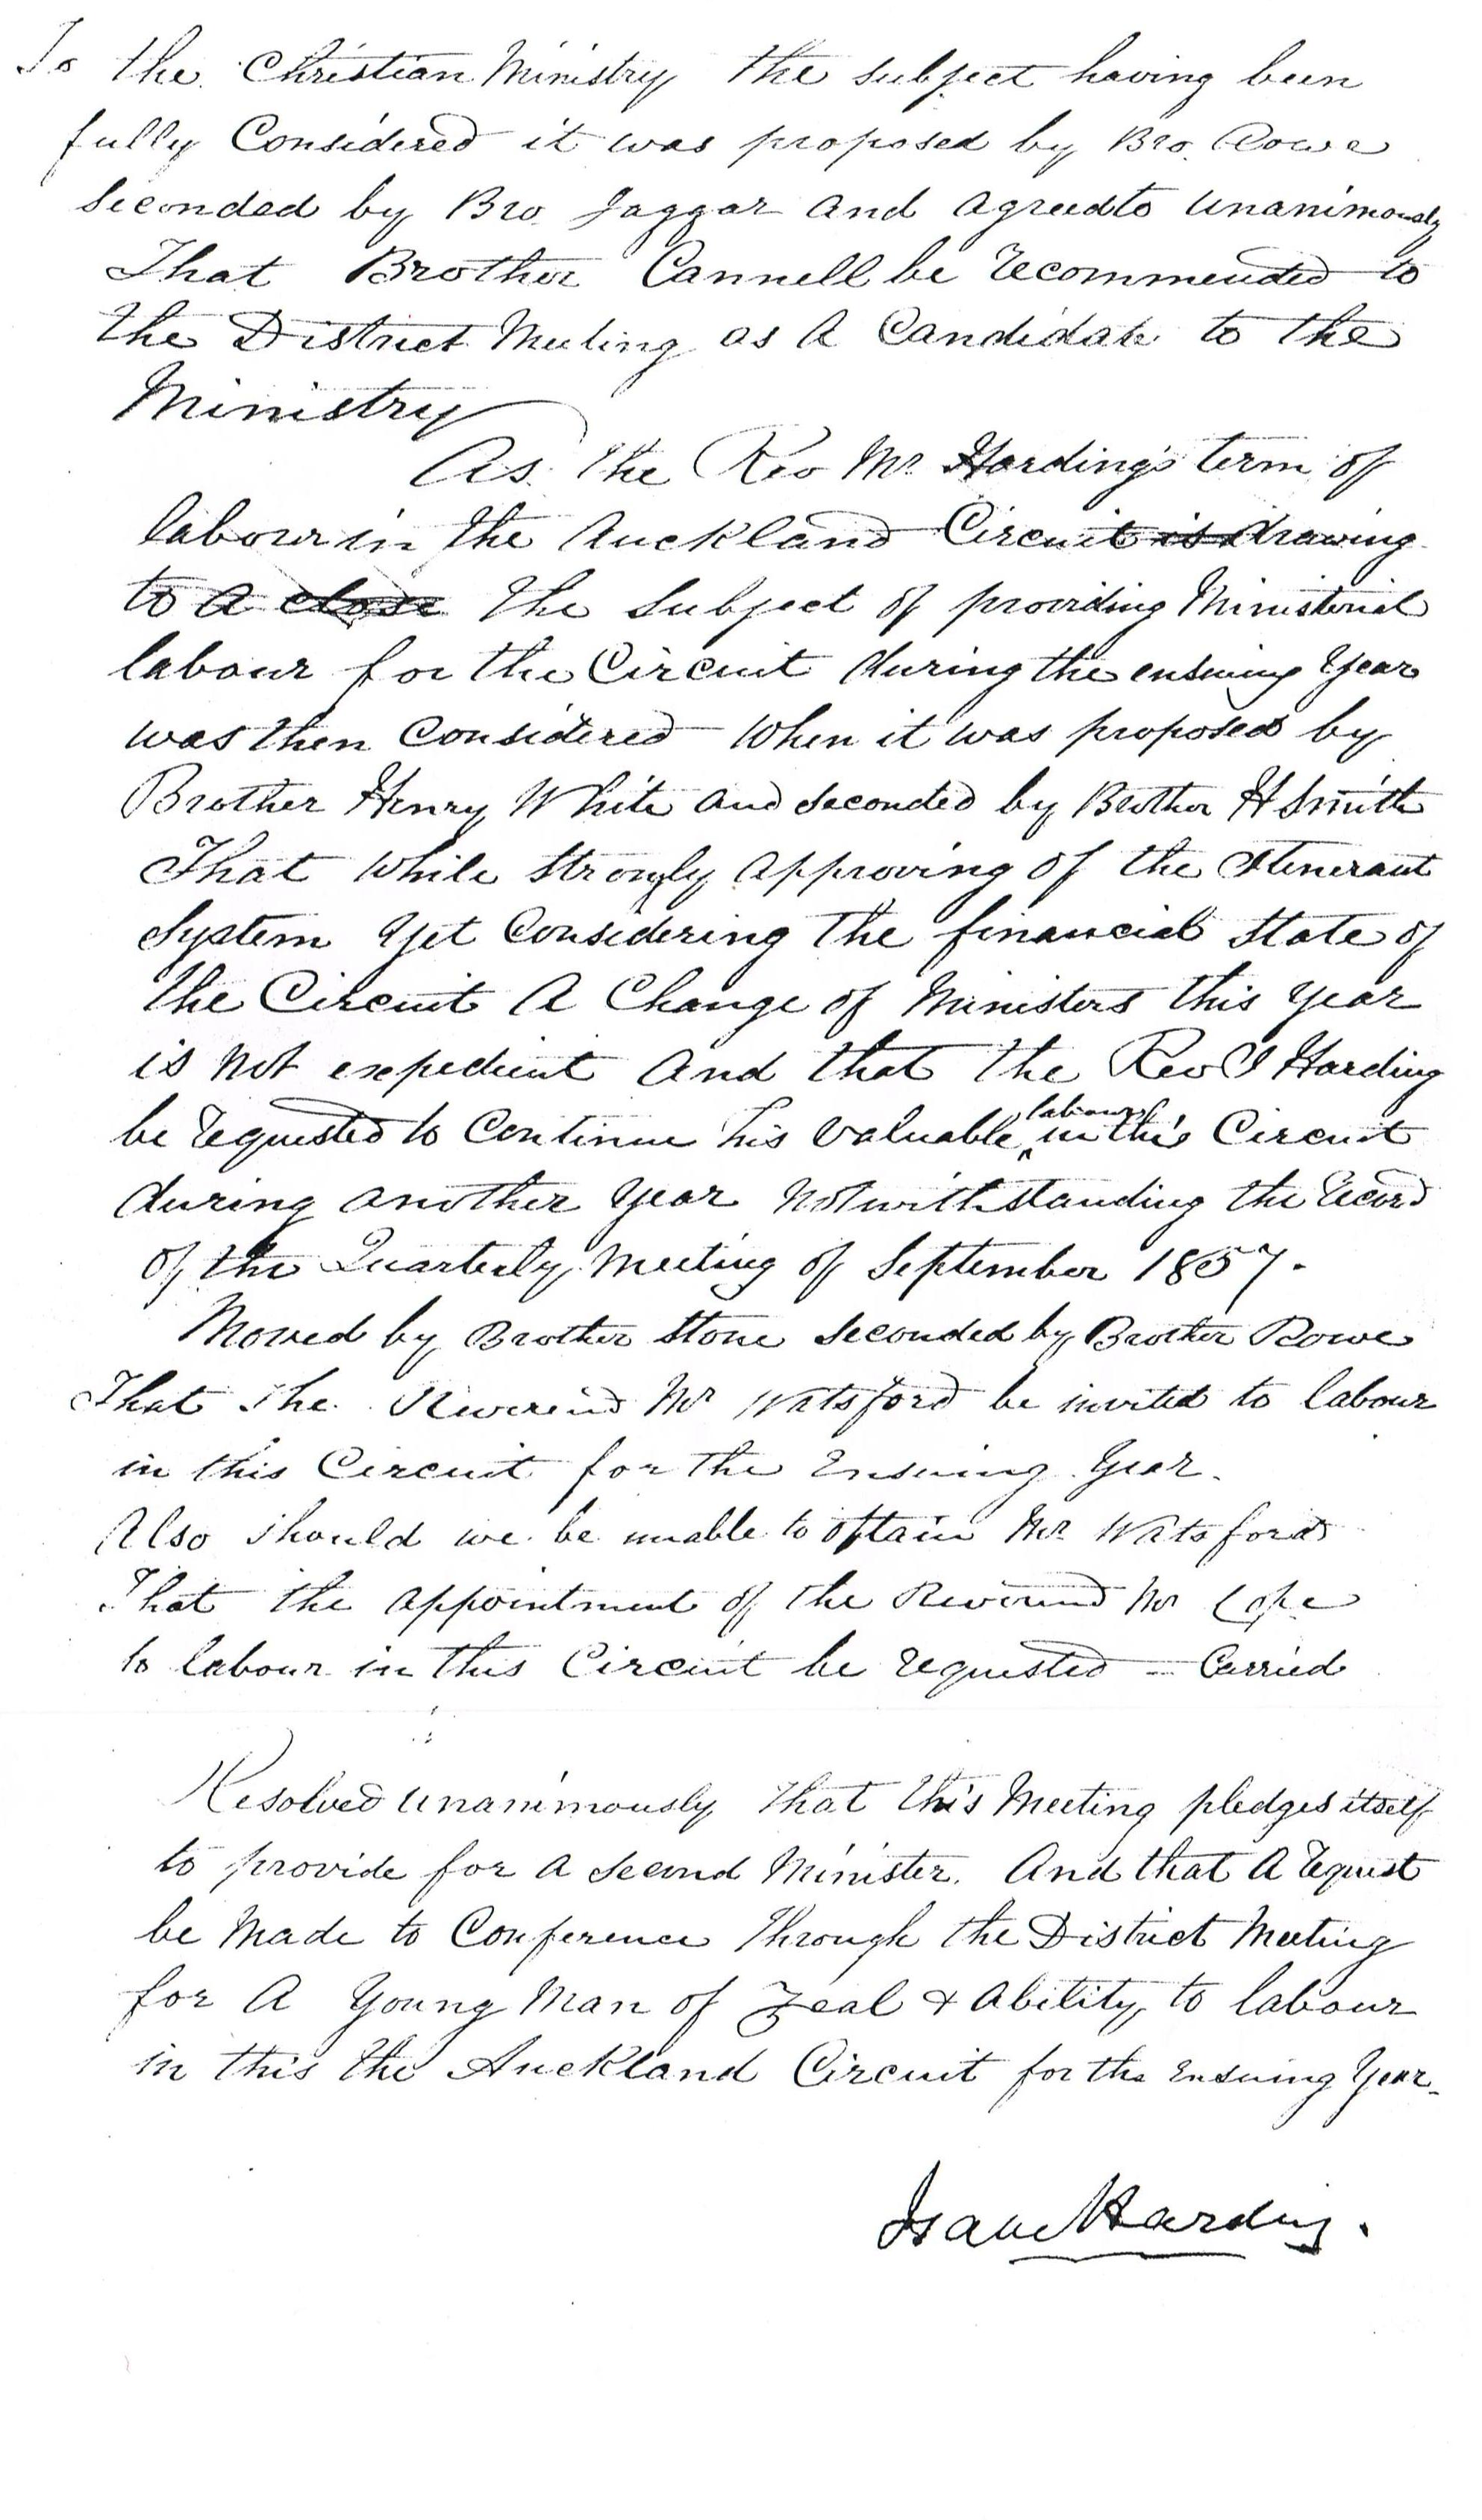 To the Christian Ministry the subject having been
fully Considered it was proposed by Bro. Rowe
seconded by Bro Jaggar and agreed to unanimously
That Brother Cannell be recommended to
the District Meeting as a Candidate to the
Ministry
As the Rev Mr Harding's term of
labour in the Auckland Circuit is drawing
to a close the subject of providing Ministerial
labour for the Circuit during the ensuing Year
was then Considered when it was proposed by
Brother Henry White and seconded by Brother H Smith
That while strongly approving of the Itenerant
System yet Considering the financial state of
the Circuit a Change of Ministers this year
is not expedient and that the Rev I Harding
be requested to Continue his valuable labours in this Circuit
during another year notwithstanding the record
of the Quarterly Meeting of September 1857.
Moved by Brother Stone seconded by Brother Rowe
That the Reverend Mr Watsford be invited to labour
in this Circuit for the Ensuing Year.
Also should we be unable to obtain Mr Watsford
That the appointment of the Reverend Mr Cope
to labour in this Circuit be requested – Carried
Resolved unanimously that this Meeting pledges itself
to provide for a second Minister. And that a request
be made to Conference through the District Meeting
for a Young Man of Zeal & Ability, to labour
in this the Auckland Circuit for the Ensuing Year.
Isaac Harding.